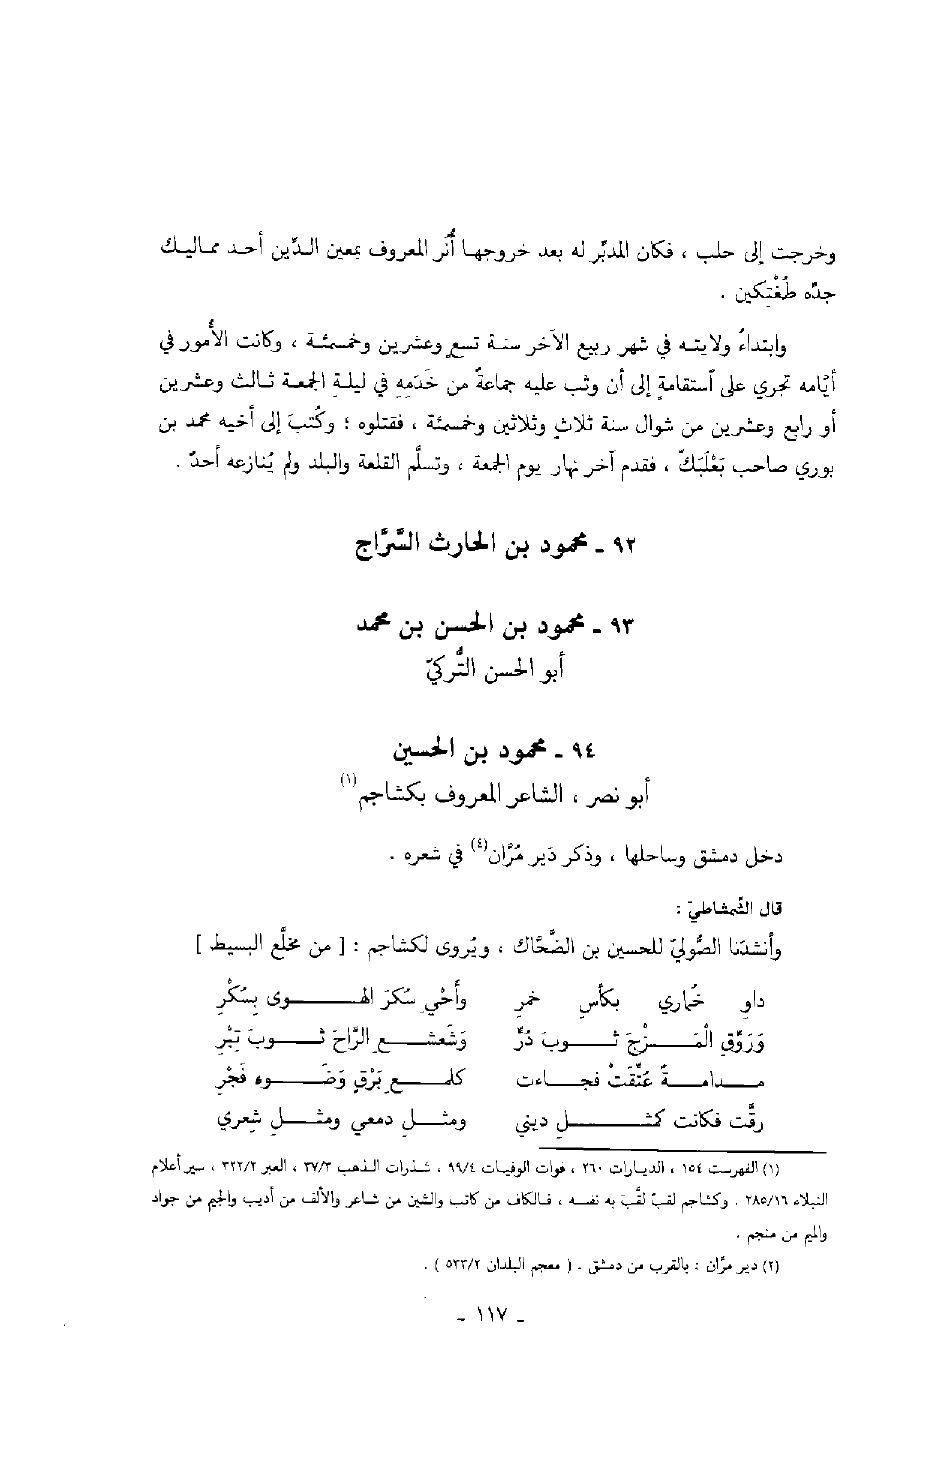 وخرجت إلى حلب ، فكان المدبّر له بعد خروجها أُنُر المعروف بمعين الدّين أحد مماليك
جدّه طُغْتِكين .
وابتداءُ ولايته في شهر ربيع الآخر سنة تسع وعشرين وخمسمئة ، وكانت الأمور في
أيّامه تجري على استقامةٍ إلى أن وثب عليه جماعةٌ من خَدَمِه في ليلة الجمعة ثالث وعشرين
أو رابع وعشرين من شوال سنة ثلاثٍ وثلاثين وخمسمئة ، فقتلوه ؛ وكُتبَ إلى أخيه محمد بن
بوري صاحب بَعْلَبَكّ ، فقدم آخر نهار يوم الجمعة ، وتسلَّم القلعة والبلد ولم يُنازعه أحدٌ .
٩٢ ـ محمود بن الحارث السَّرَّاج
٩٣ ـ محمود بن الحسن بن محمد
أبو الحسن التُّركيّ
٩٤ ـ محمود بن الحسين
أبو نصر ، الشاعر المعروف بكشاجم(١)
دخل دمشق وساحلها ، وذكر دَير مُرَّان(٤) في شعره .
قال الشّمشاطيّ :
وأنشدَنا الصُّوليّ للحسين بن الضَّحَّاك ، ويُروى لكشاجم : [ من مخلَّع البسيط ]
داوِ خُماري بكأسِ خمرِ وأَحْيِ سُكرَ الهوى بِسُكْرِ
وَرَوِّقِ الْمَزْجَ ثوبَ دُرٍّ وَشَعشعِ الرَّاحَ ثوبَ تِبْرِ
مدامةٌ عتِّقَتْ فجاءت كلمعِ بَرْقٍ وَضَوءِ فَجْرِ
رقَّت فكانت كمثلِ ديني ومثلِ دمعي ومثلِ شعري
(١) الفهرست ١٥٤ ، الديارات ٢٦٠ ، فوات الوفيات ٩٩/٤ ، شذرات الذهب ٣٧/٣ ، العبر ٣٢٢/٢ ، سير أعلام
النبلاء ٢٨٥/١٦ . وكشاجم لقبٌ لقَّبَ به نفسه ، فالكاف من كاتب والشين من شاعر والألف من أديب والجيم من جواد
والميم من منجم .
(٢) دير مرَّان : بالقرب من دمشق . ( معجم البلدان ٥٣٣/٢ ) .
ـ ١١٧ ـ